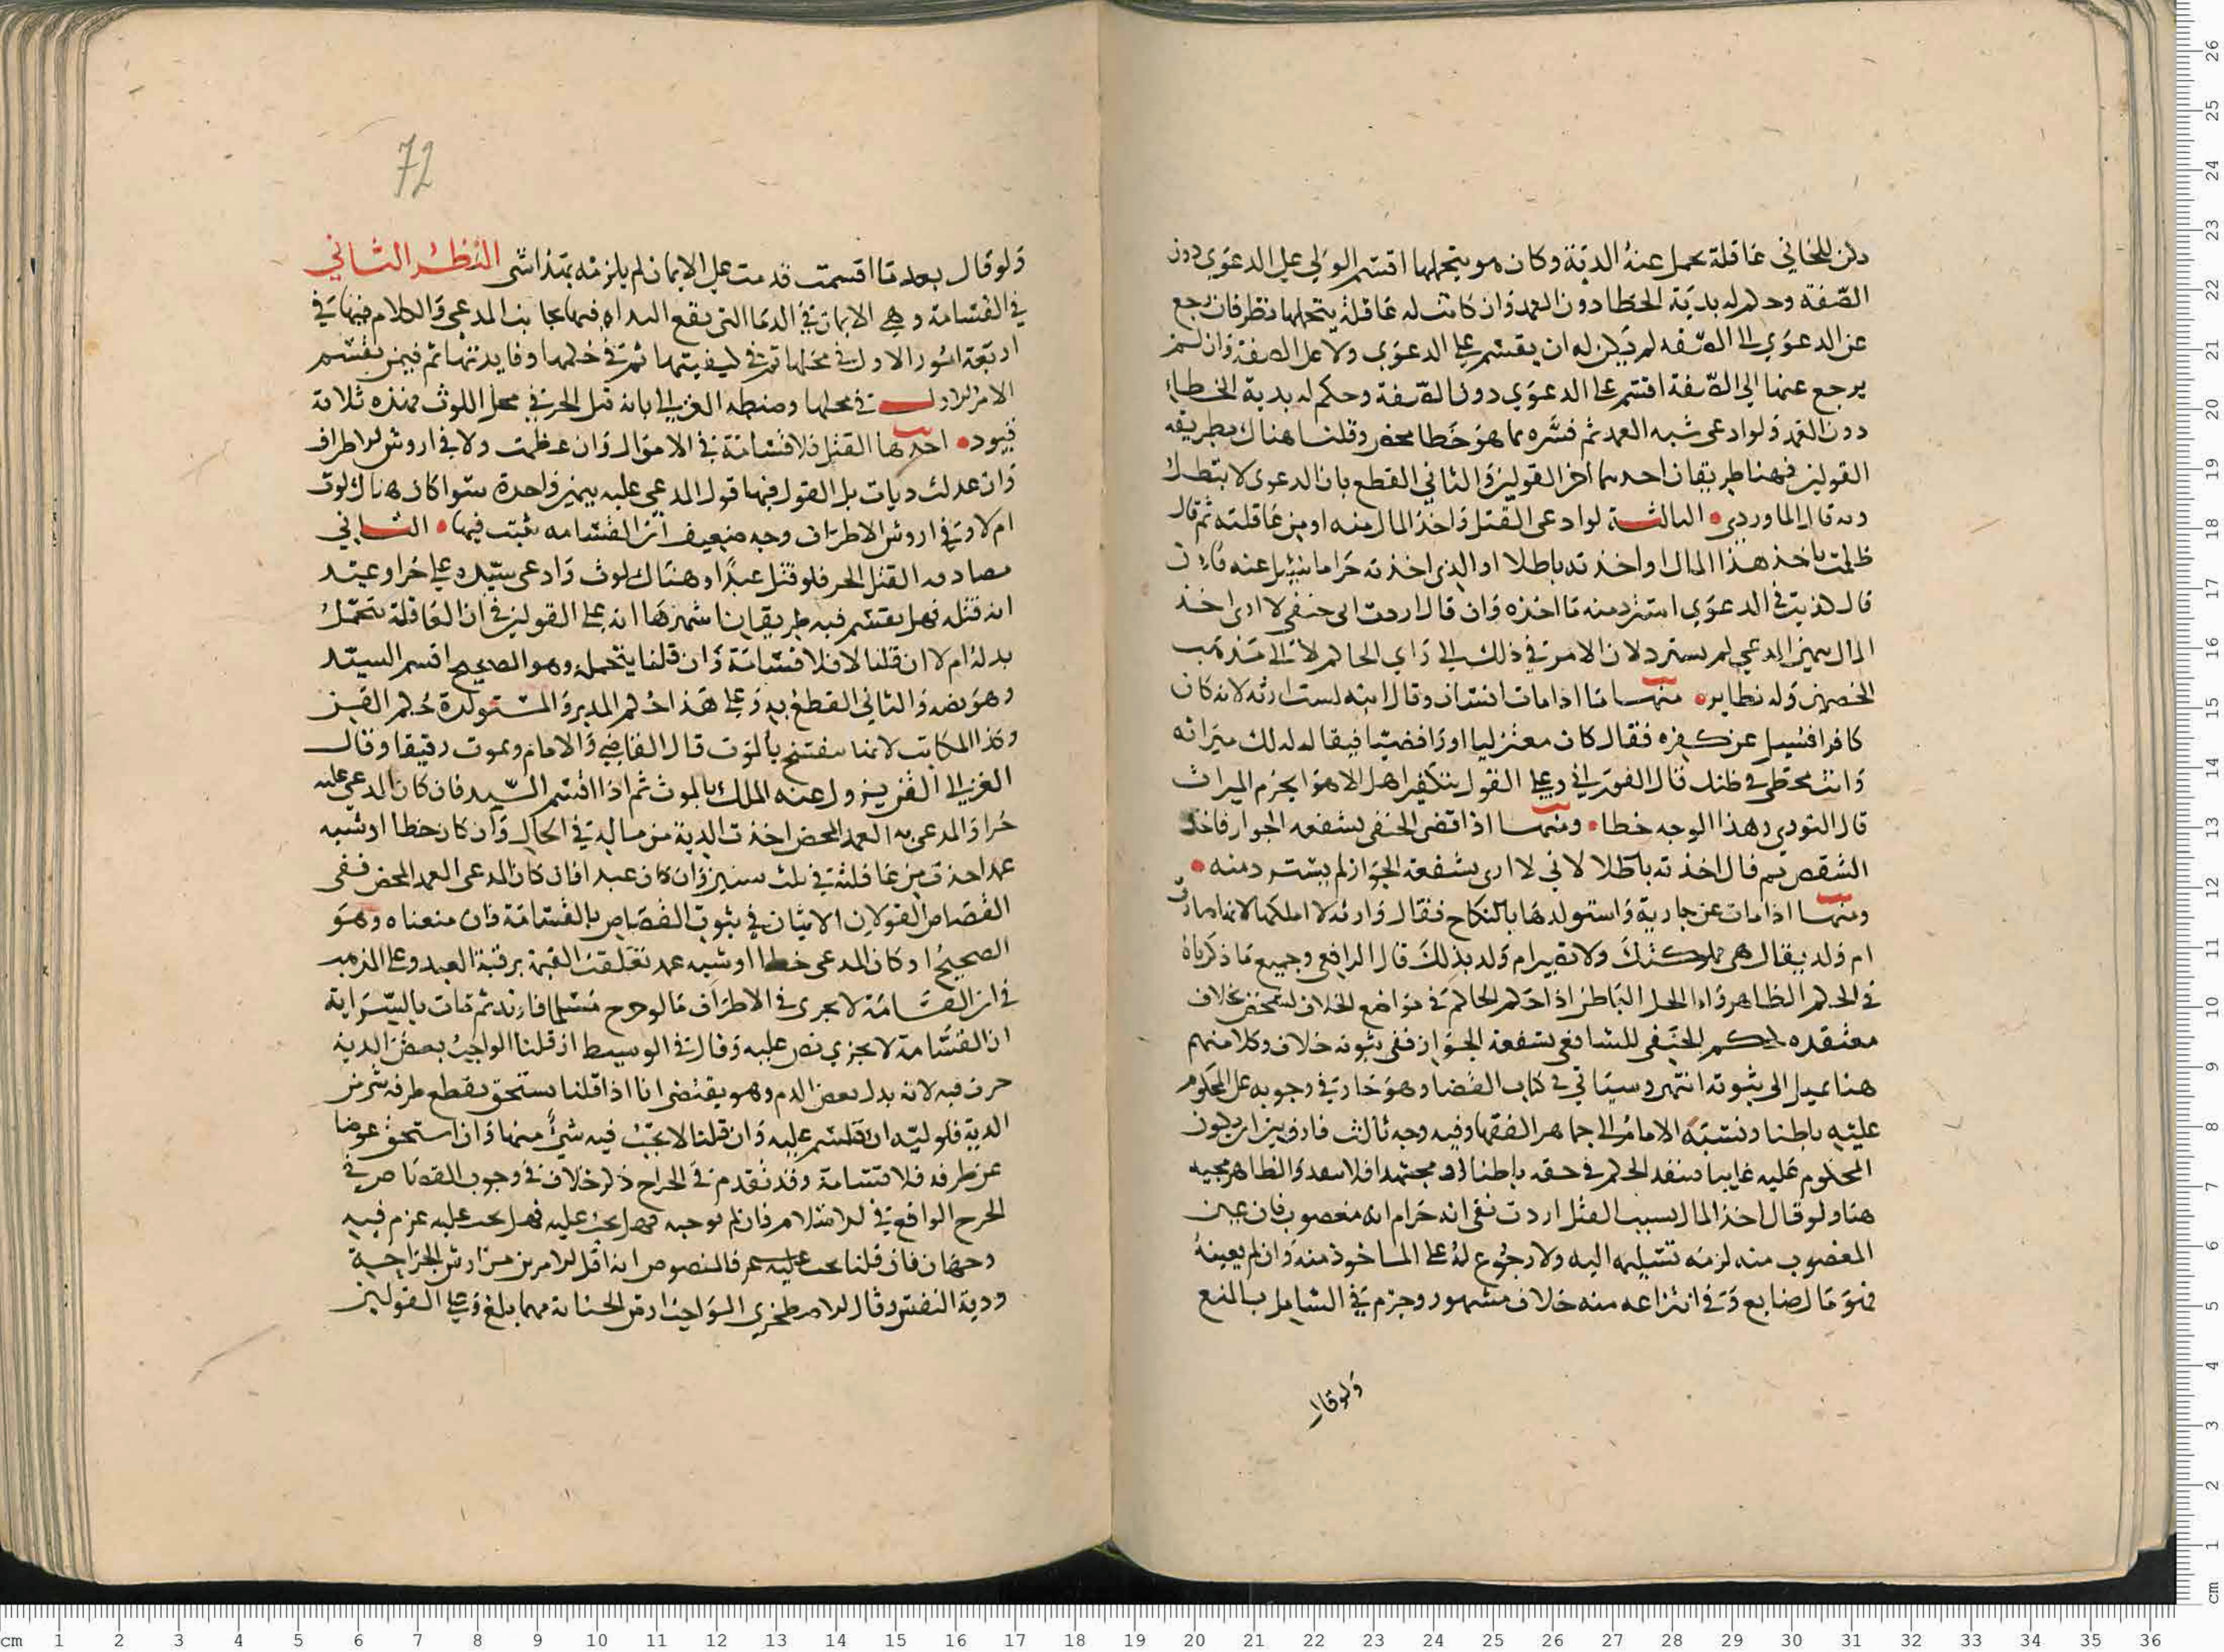 يكن للجاني عاقلة تحمل عنه الدية وكان هو يتحملها اقسم الولي على الدعوى دون
الصفة وحكم له بدية الخطا دون العمد وان كانت له عاقلة يتحملها نظر فان رجع
عن الدعوى الى الصفه لم يكن له ان يقسم على الدعوى ولا على الصفة وان لم
يرجع عنها الى الصفة اقسم على الدعوي دون الصفة وحكم له بدية الخطاء
دون العمد ولو ادعى شبه العمد ثم فسره بما هو خطا محض وقلنا هناك بطريقه
القولين فههنا طريقان احدهما اخر القولين والثاني القطع بان الدعوى لا تبطل
وبه قال الماوردي الثالثة لو ادعى القتل واخذ المال منه او من عاقلته ثم قال
ظلمت باخذ هذا المال او اخذته باطلا او الذي اخذته حراما سئل عنه فان
قال كذبت في الدعوى استرد منه ما اخذه وان قال اردت اني حنفي لا ارى اخذ
المال بيمين المدعي لم يسترد لان الامر في ذلك الى راي الحاكم لا الى مذهب
الخصمين وله نظاير منها ما اذا مات انسان وقال ابنه لست ارثه لانه كان
كافرا فسيل عن كفره فقال كان معتزليا او رافضيا فيقال له لك ميراثه
وانت مخطى في ظنك قال الفوراني وعلى القول بتكفير اهل الاهوا يحرم الميراث
قال النووي وهذا الوجه خطا ومنها اذا قضى الحنفى بشفعه الجوار فاخذ
الشقص ثم قال اخذته باطلا لاني لا ارى بشفعة الجوار لم يسترد منه
ومنها اذا مات عن جارية واستولدها بالنكاح فقال وارثه لا املكها لانها صارت
ام ولد يقال هي مملوكتك ولا تصير ام ولد بذلك قال الرافعي وجميع ما ذكرناه
في الحكم الظاهر واما الحل الباطن اذا حكم الحاكم في مواضع الخلاف لشخص بخلاف
معتقده كحكم الحنفي للشافعي بشفعة الجوار ففي ثبوته خلاف وكلامنهم
هنا يميل الى ثبوته انتهى وسياتي في كتاب القضا وهو جار في وجوبه على المحكوم
عليه باطنا ونسبه الامام الى جماهر الفقها وفيه وجه ثالث فارق بين ان يكون
المحكوم عليه غايبا فينفد الحكم في حقه باطنا او مجتهدا فلا ينفد والظاهر مجيه
هنا ولو قال اخذ المال بسبب القتل اردت نفى انه حرام انه مغصوب فان عين
المغصوب منه لزمه تسليمه اليه ولا رجوع له على الماخوذ منه وان لم يعينه
فهو مال ضايع وفي انتزاعه منه خلاف مشهور وجزم في الشامل بالمنع
ولو قال
72
ولو قال بعد ما اقسمت ندمت على الايمان لم يلزمه بهذا شى النظر الثاني
في القسامة وهي الايمان في الدما التى يقع البداه فيها بجانب المدعى والكلام فيها في
اربعة امور الاول في محلها ثم في كيفيتها ثم في حكمها وفايدتها ثم فيمن يقسم
الامر الاول في محلها وضبطه الغزالي بانه قتل الحر في محل اللوث فهذه ثلاثة
قيود احدها القتل فلا قسامة في الاموال وان عظمت ولا في اروش الاطراف
وان عدلت ديات بل القول فيها قول المدعى عليه بيمين واحدة سوا كان هناك لوث
ام لا وفي اروش الاطراف وجه ضعيف ان القسامه تثبت فيها الثاني
مصادفه القتل الحر فلو قتل عبدا وهناك لوث وادعى سيده على حر او عبد
انه قتله فهل يقسم فيه طريقان اشهرهما انه على القولين في ان العاقلة تتحمل
بدله ام لا ان قلنا لا فلا قسامة وان قلنا يتحمله وهو الصحيح اقسم السيد
وهو نصه والثاني القطع به وعلى هذا حكم المدبر والمستولدة حكم القن
وكذا المكاتب لانها تنفسخ بالموت قال القاضي والامام ويموت رقيقا وقال
الغزالي القن يزول عنه الملك بالموت ثم اذا اقسم السيد فان كان المدعى عليه
حرا والمدعى به العمد المحض اخذت الدية من ماله في الحال وان كان خطا او شبه
عمد اخذت من عاقلته في ثلث سنين وان كان عبدا فان كان المدعى العمد المحض ففى
القصاص القولان الاتيان في ثبوت القصاص بالقسامة فان منعناه وهو
الصحيح او كان المدعى خطا او شبه عمد تعلقت القيمة برقبة العبد وعلى المذهب
في ان القسامة لا تجرى في الاطراف ما لو جرح مسلما فارتد ثم مات بالسراية
ان القسامة لا تجزي نص عليه وقال في الوسيط ان قلنا الواجب بعض الدية
جرت فيه لانه بدل بعض الدم وهو يقتضى انا اذا قلنا يستحق بقطع طرفه شى من
الدية فلوليه ان يقسم عليه وان قلنا لا يجب فيه شئ منها وان استحق عوضا
عن طرفه فلا قسامة وقد تقدم في الجراح ذكر خلاف في وجوب القصاص في
الجرح الواقع في الاسلام فان لم نوجبه فهل يجب عليه فهل يجب عليه غرم فيه
وجهان فان قلنا يجب عليه غرم فالمنصوص انه اقل الامرين من ارش الجراحة
ودية النفس وقال الاصطخري الواجب ارش الجناية مهما بلغ وعلى القولين